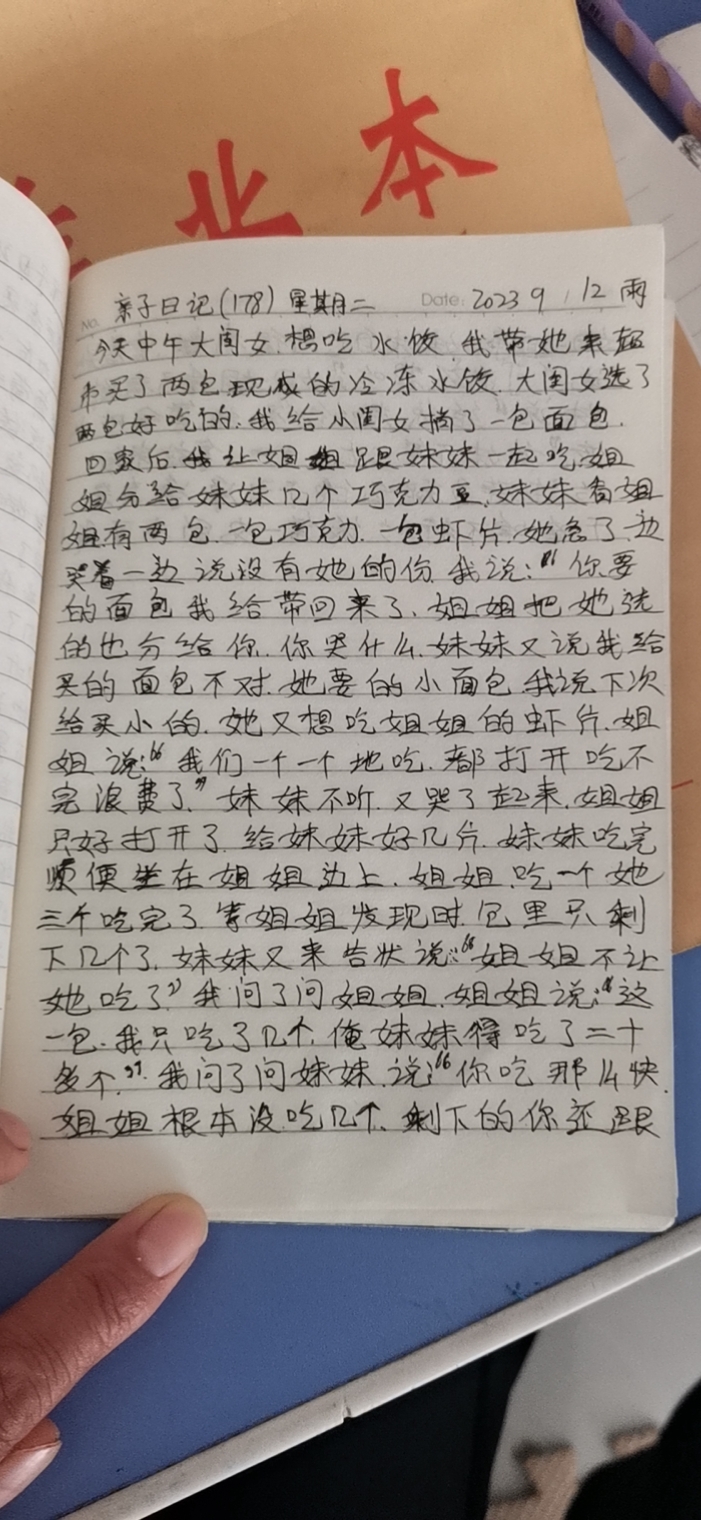 业本
No. 亲子日记(178) 星期二 Date: 2023 9 / 12 雨
今天中午大闺女.想吃水饺.我带她来超
市买了两包现成的冷冻水饺.大闺女选了
两包好吃的.我给小闺女捎了一包面包.
回家后.我让姐姐跟妹妹一起吃.姐
姐分给妹妹几个巧克力豆.妹妹看姐
姐有两包.一包巧克力.一包虾片.她急了.边
哭着一边说没有她的份.我说:“你要
的面包我给带回来了.姐姐把她选
的也分给你.你哭什么.妹妹又说我给
买的面包不对.她要的小面包.我说下次
给买小的.她又想吃姐姐的虾片.姐
姐说:“我们一个一个地吃.都打开吃不
完浪费了.”妹妹不听.又哭了起来.姐姐
只好打开了.给妹妹好几片.妹妹吃完
顺便坐在姐姐边上.姐姐.吃一个她
三个吃完了.等姐姐发现时.包里只剩
下几个了.妹妹又来告状说:“姐姐不让
她吃了”我问了问姐姐.姐姐说:“这
一包.我只吃了几个.俺妹妹得吃了二十
多个.”我问了问妹妹.说:“你吃那么快.
姐姐根本没吃几个.剩下的你还跟